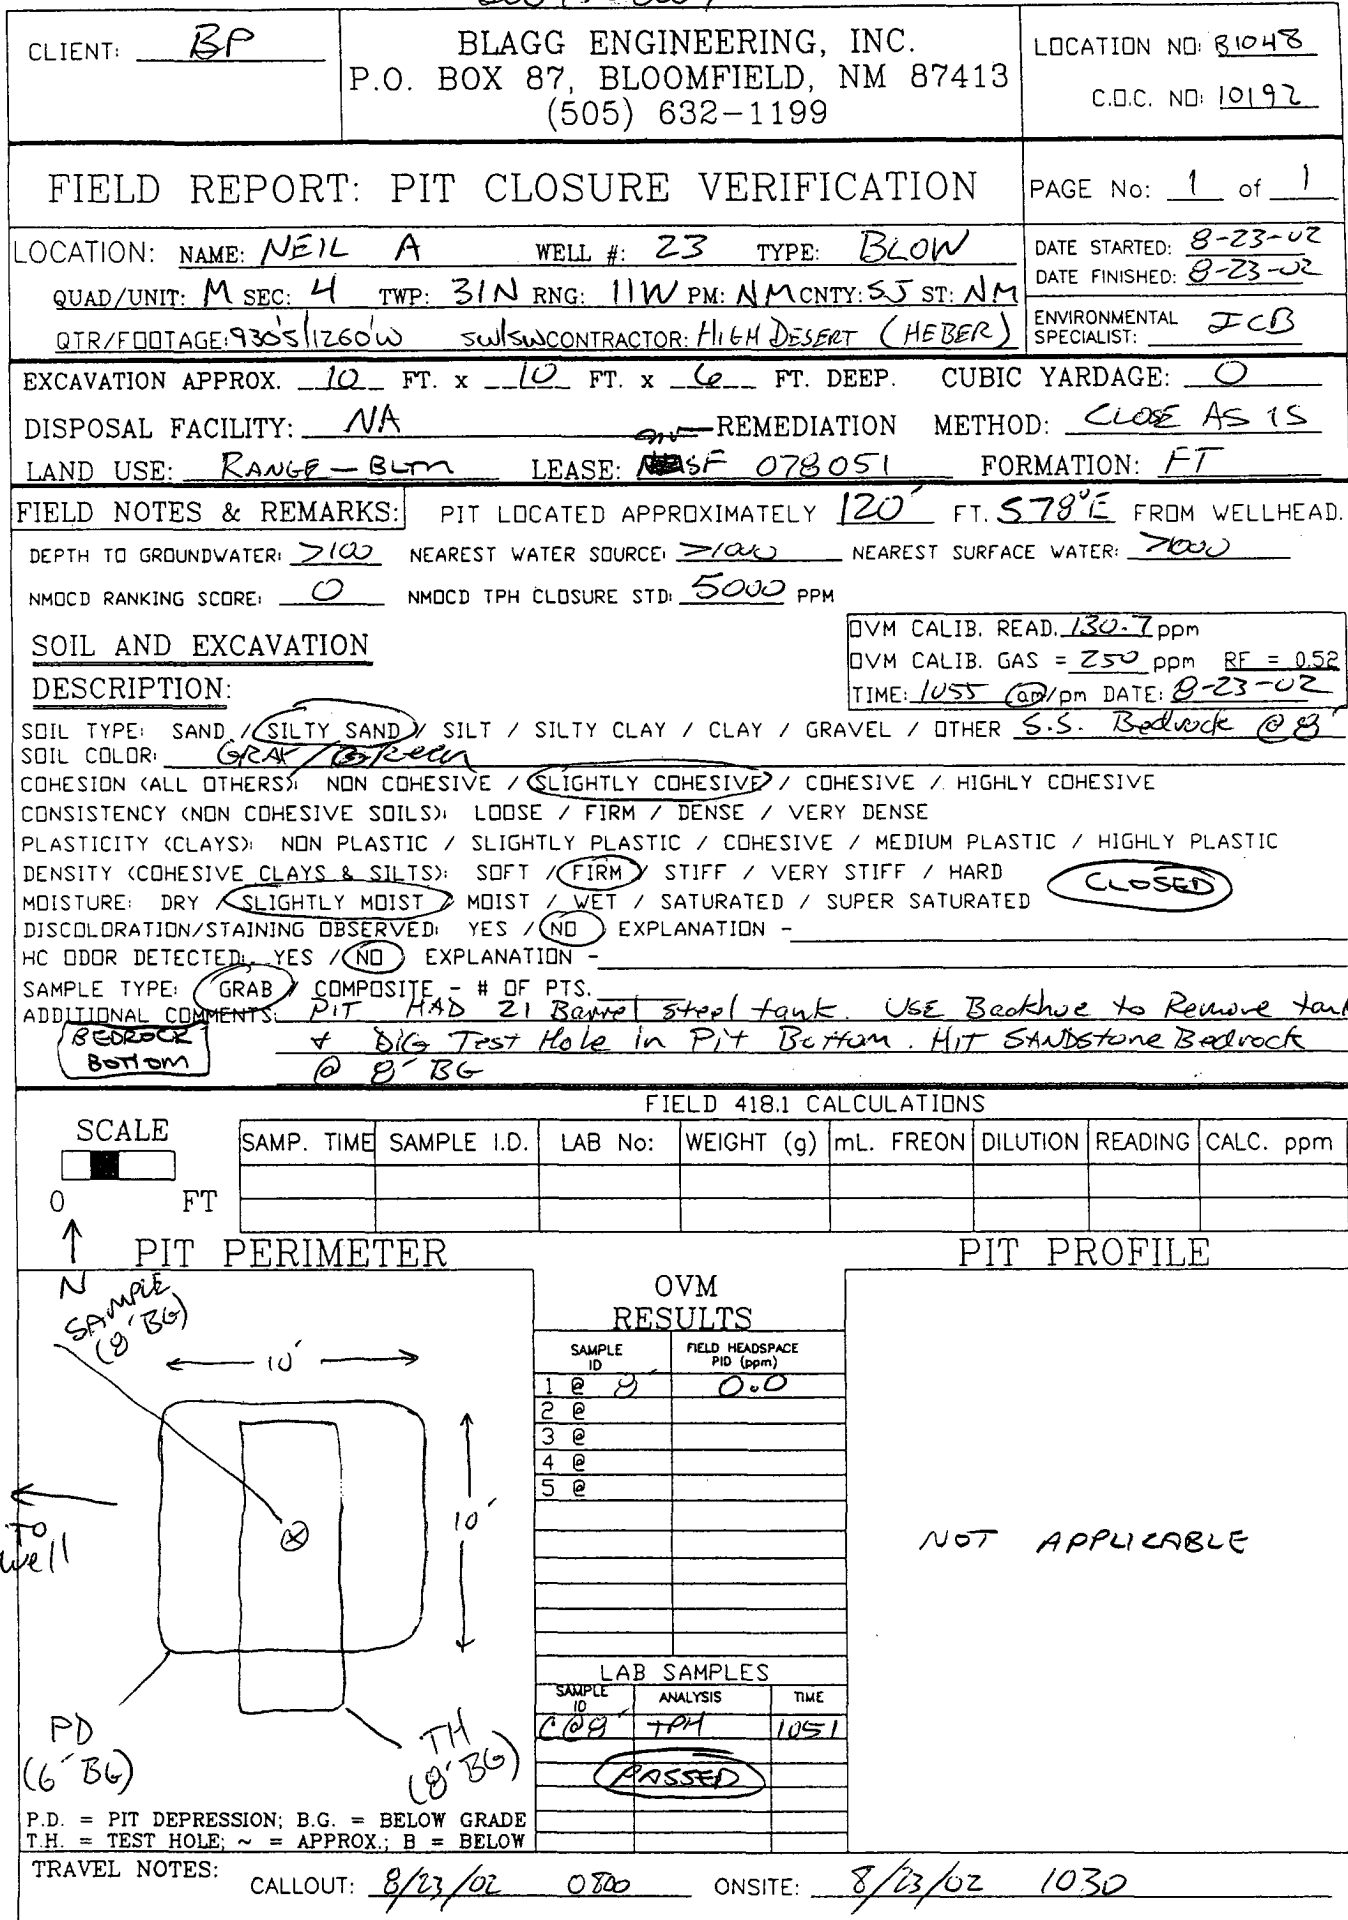 CLIENT: BP
BLAGG ENGINEERING, INC.
P.O. BOX 87, BLOOMFIELD, NM 87413
(505) 632-1199
LOCATION NO: B1048
C.O.C. NO: 10192
FIELD REPORT: PIT CLOSURE VERIFICATION
PAGE No: 1 of 1
LOCATION: NAME: NEIL A WELL #: 23 TYPE: BLOW
QUAD/UNIT: M SEC: 4 TWP: 31N RNG: 11W PM: NM CNTY: SJ ST: NM
QTR/FOOTAGE: 930'S/1260'W SW/SW CONTRACTOR: HIGH DESERT (HEBER)
DATE STARTED: 8-23-02
DATE FINISHED: 8-23-02
ENVIRONMENTAL
SPECIALIST: JCB
EXCAVATION APPROX. 10 FT. x 10 FT. x 6 FT. DEEP. CUBIC YARDAGE: 0
DISPOSAL FACILITY: NA REMEDIATION METHOD: CLOSE AS IS
LAND USE: RANGE - BLM LEASE: SF 078051 FORMATION: FT
FIELD NOTES & REMARKS: PIT LOCATED APPROXIMATELY 120' FT. S78°E FROM WELLHEAD.
DEPTH TO GROUNDWATER: >100 NEAREST WATER SOURCE: >1000 NEAREST SURFACE WATER: >1000
NMOCD RANKING SCORE: 0 NMOCD TPH CLOSURE STD: 5000 PPM
SOIL AND EXCAVATION
DESCRIPTION:
OVM CALIB. READ. 130.7 ppm
OVM CALIB. GAS = 250 ppm RF = 0.52
TIME: 1055 am/pm DATE: 8-23-02
SOIL TYPE: SAND / SILTY SAND / SILT / SILTY CLAY / CLAY / GRAVEL / OTHER S.S. Bedrock @ 8'
SOIL COLOR: GRAY / Green
COHESION (ALL OTHERS): NON COHESIVE / SLIGHTLY COHESIVE / COHESIVE / HIGHLY COHESIVE
CONSISTENCY (NON COHESIVE SOILS): LOOSE / FIRM / DENSE / VERY DENSE
PLASTICITY (CLAYS): NON PLASTIC / SLIGHTLY PLASTIC / COHESIVE / MEDIUM PLASTIC / HIGHLY PLASTIC
DENSITY (COHESIVE CLAYS & SILTS): SOFT / FIRM / STIFF / VERY STIFF / HARD
CLOSED
MOISTURE: DRY / SLIGHTLY MOIST / MOIST / WET / SATURATED / SUPER SATURATED
DISCOLORATION/STAINING OBSERVED: YES / NO EXPLANATION -
HC ODOR DETECTED: YES / NO EXPLANATION -
SAMPLE TYPE: GRAB / COMPOSITE - # OF PTS.
ADDITIONAL COMMENTS: PIT HAD 21 Barrel steel tank. USE Backhoe to Remove tank
BEDROCK
BOTTOM
+ DIG Test Hole in Pit Bottom. HIT SANDstone Bedrock
@ 8' BG
FIELD 418.1 CALCULATIONS
SCALE
0 FT
SAMP. TIME SAMPLE I.D. LAB No: WEIGHT (g) mL. FREON DILUTION READING CALC. ppm
N
PIT PERIMETER
PIT PROFILE
SAMPLE
(8' BG)
10'
10'
TO
Well
PD
(6' BG)
TH
(8' BG)
P.D. = PIT DEPRESSION; B.G. = BELOW GRADE
T.H. = TEST HOLE; ~ = APPROX.; B = BELOW
OVM
RESULTS
SAMPLE ID FIELD HEADSPACE PID (ppm)
1 @ 8' 0.0
2 @
3 @
4 @
5 @
LAB SAMPLES
SAMPLE ID ANALYSIS TIME
C@8' TPH 1051
PASSED
NOT APPLICABLE
TRAVEL NOTES: CALLOUT: 8/23/02 0800 ONSITE: 8/23/02 1030